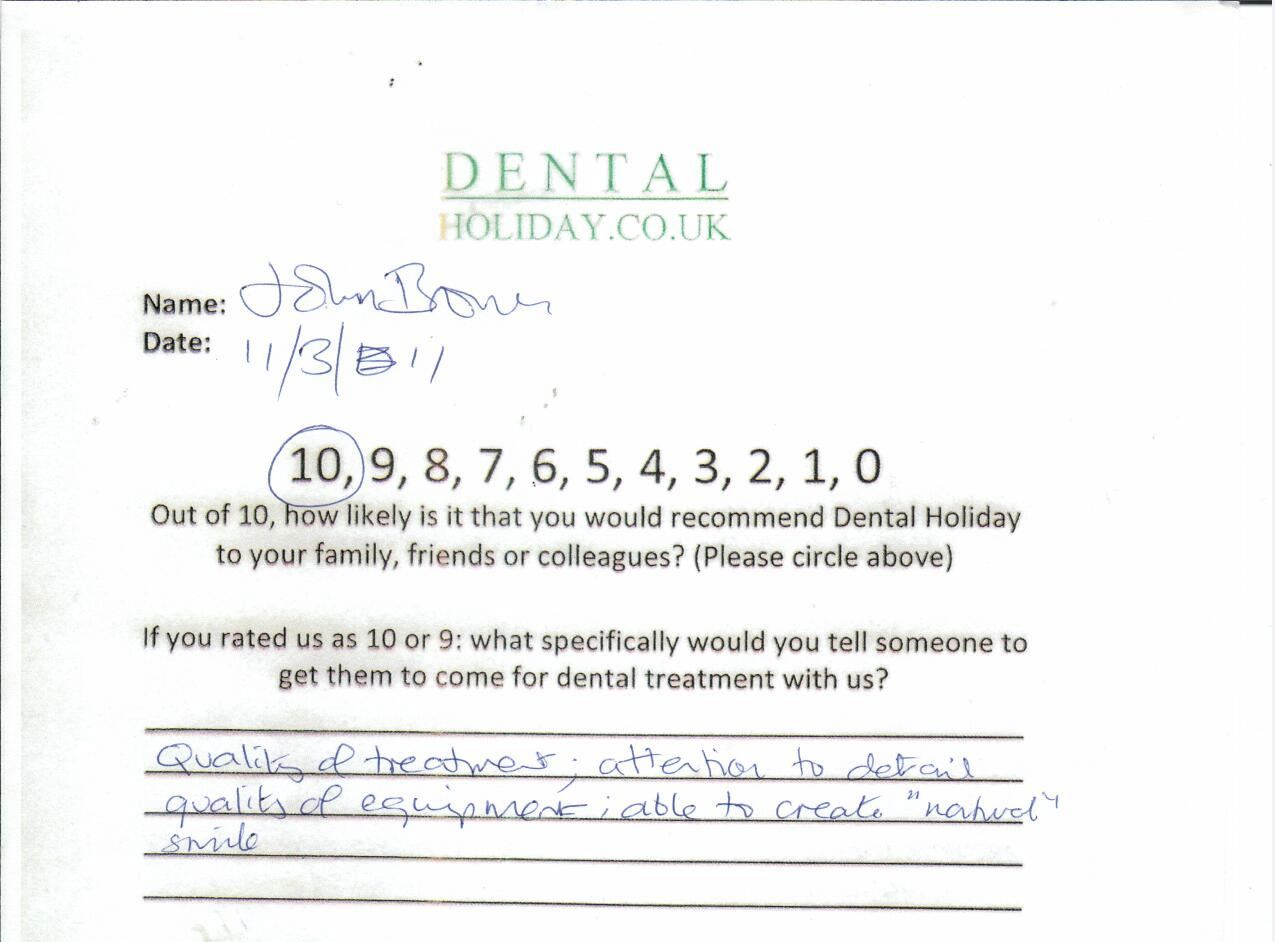 DENTAL
HOLIDAY.CO.UK
Name: John
Date: 11/3/11
10, 9, 8, 7, 6, 5, 4, 3, 2, 1, 0
Out of 10, how likely is it that you would recommend Dental Holiday
to your family, friends or colleagues? (Please circle above)
If you rated us as 10 or 9: what specifically would you tell someone to
get them to come for dental treatment with us?
Quality of treatment; attention to detail
quality of equipment; able to create "natural"
smile